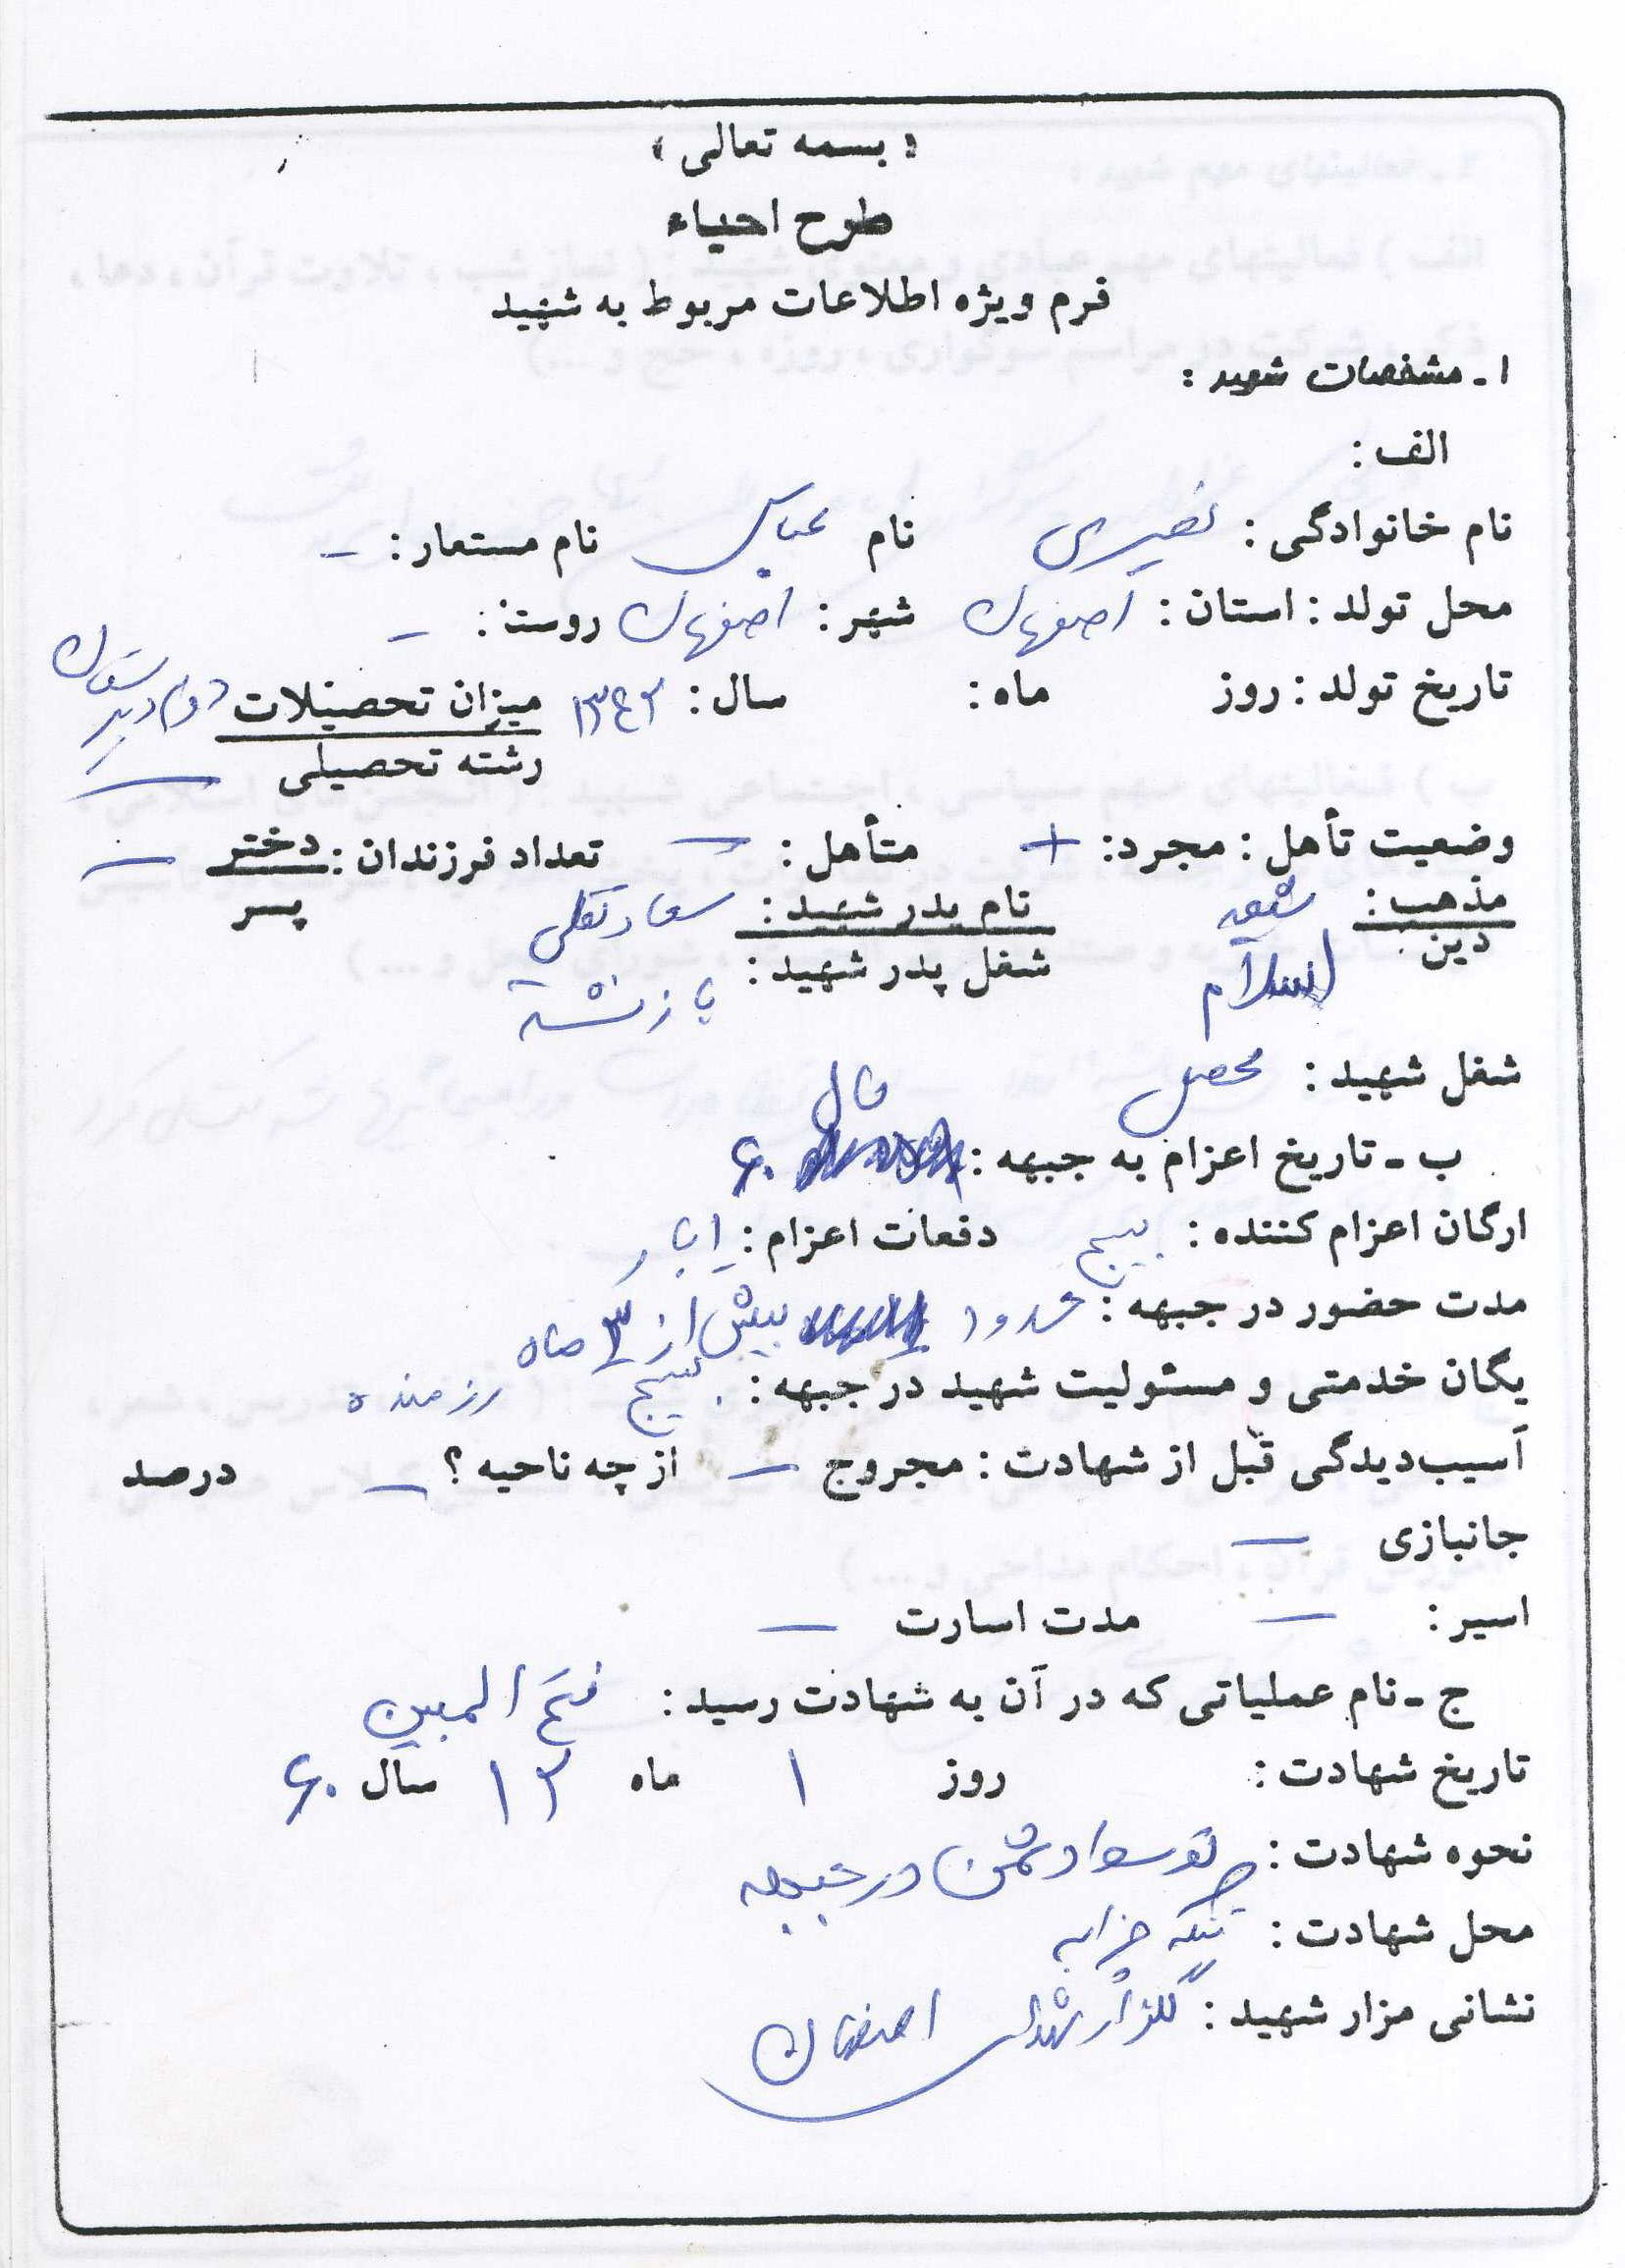 «بسمه تعالی»
طرح احیاء
فرم ویژه اطلاعات مربوط به شهید
۱ـ مشخصات شهید :
الف :
نام خانوادگی : نصیری نام عباس نام مستعار : –
محل تولد : استان : اصفهان شهر : اصفهان روستا : –
تاریخ تولد : روز ماه : سال : ۱۳۴۲ میزان تحصیلات دوم دبیرستان
رشته تحصیلی —
وضعیت تأهل : مجرد : + متأهل : – تعداد فرزندان : دختر –
پسر
مذهب : شیعه نام پدر شهید : سعادتقلی
دین : اسلام شغل پدر شهید : بازنشسته
شغل شهید : محصل
ب ـ تاریخ اعزام به جبهه : سال ۶۰
ارگان اعزام کننده : بسیج دفعات اعزام : ۱ بار
مدت حضور در جبهه : حدود بیش از ۳ ماه
یگان خدمتی و مسئولیت شهید در جبهه : بسیج رزمنده
آسیب‌دیدگی قبل از شهادت : مجروح – از چه ناحیه ؟ – درصد
جانبازی –
اسیر : – مدت اسارت –
ج ـ نام عملیاتی که در آن به شهادت رسید : فتح المبین
تاریخ شهادت : روز ۱ ماه ۱۲ سال ۶۰
نحوه شهادت : توسط دشمن در جبهه
محل شهادت : تنگه چزابه
نشانی مزار شهید : گلزار شهدای اصفهان